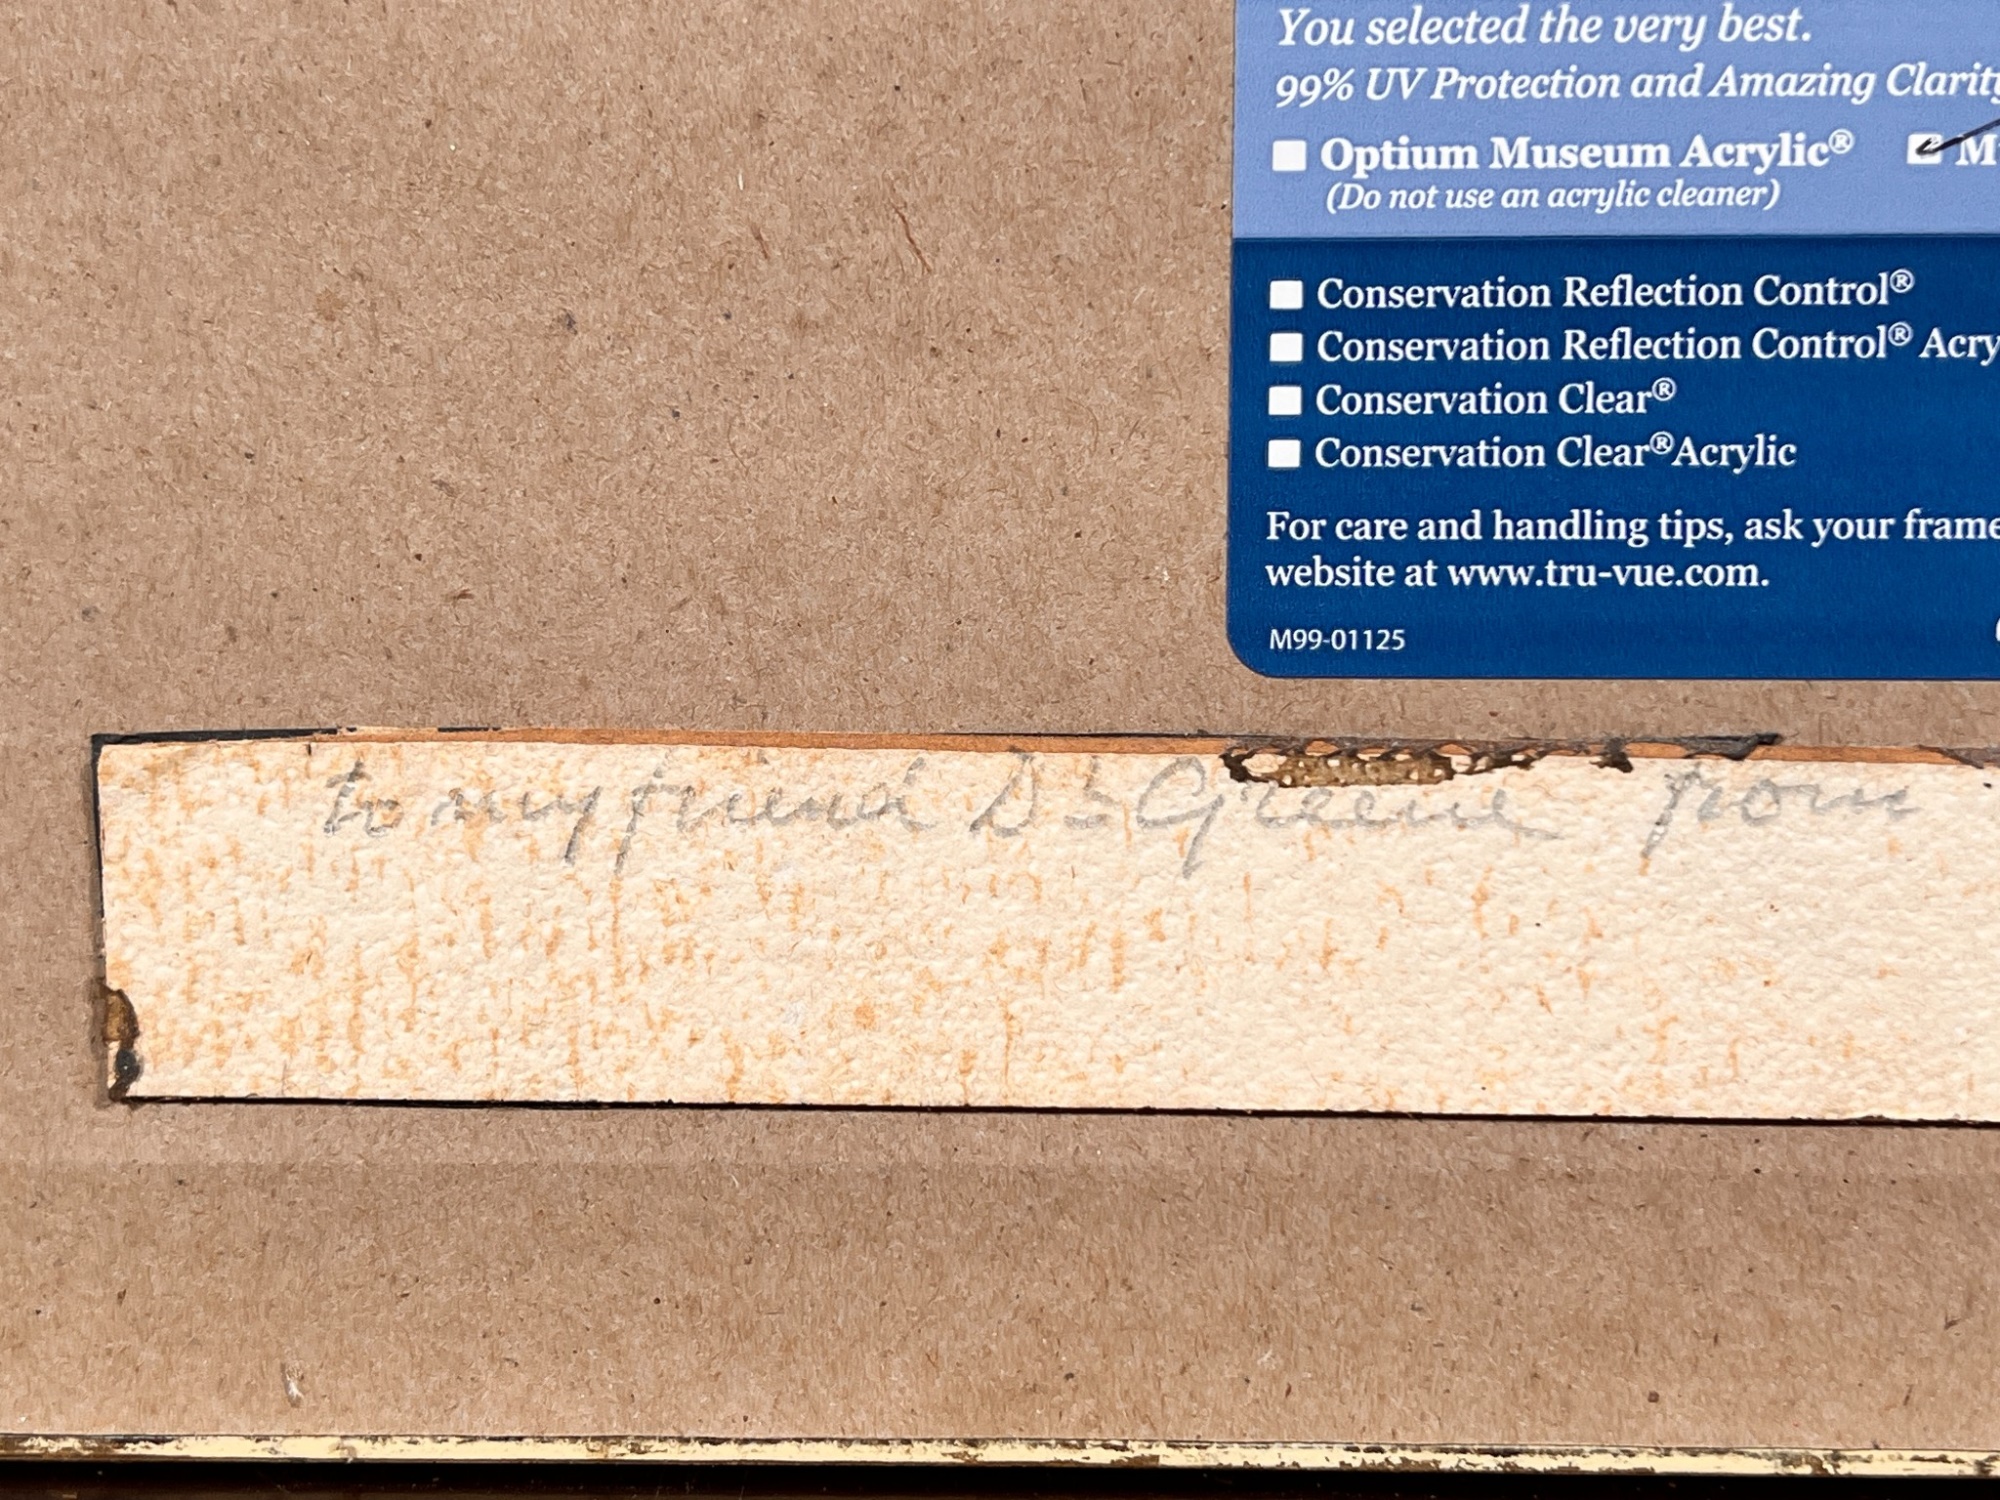 You selected the very best.
99% UV Protection and Amazing Clarity
Optium Museum Acrylic®
(Do not use an acrylic cleaner)
Conservation Reflection Control®
Conservation Reflection Control® Acry
Conservation Clear®
Conservation Clear® Acrylic
For care and handling tips, ask your frame
website at www.tru-vue.com.
M99-01125
to my friend Dr Greene from